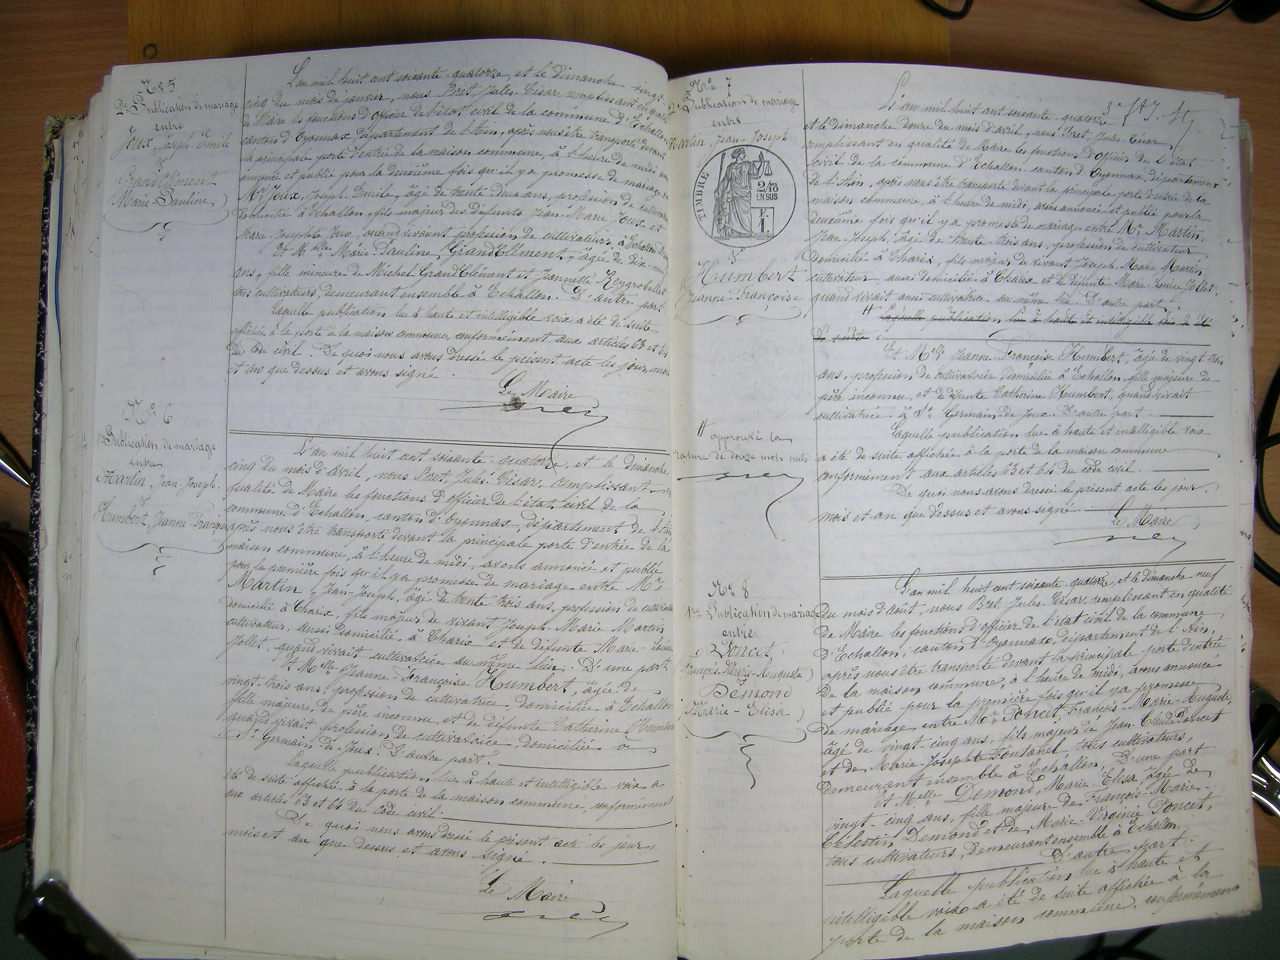 N° 5
2e Publication de mariage
entre
Joux, Joseph Emile
et
Grandclément
Marie Pauline
L'an mil huit cent soixante-quatorze, et le dimanche vingt
cinq du mois de janvier, nous Bret Jules César remplissant en qualité
de Maire les fonctions d'officier de l'état civil de la commune d'Echallon
canton d'Oyonnax département de l'Ain, après nous être transporté devant
la principale porte d'entrée de la maison commune, à l'heure de midi avons
annoncé et publié pour la deuxième fois qu'il y a promesse de mariage
Mr Joux, Joseph Emile, âgé de trente deux ans, profession de cultivateur
domicilié à Echallon, fils majeur des défunts Jean-Marie Joux et
Marie Josephte Joux, quand vivant profession de cultivateurs, à Echallon
Et Melle Marie-Pauline Grandclément, âgée de dix-neuf
ans, fille mineure de Michel Grandclément et Jeannette Reygrobellet
tous cultivateurs, demeurant ensemble à Echallon. D'autre part
Laquelle publication lue à haute et intelligible voix a été de suite
affichée à la porte de la maison commune conformément aux articles 63 et 64
du Code civil. De quoi nous avons dressé le présent acte les jour, mois
et an que dessus et avons signé.
Le Maire
N° 6
1re Publication de mariage
entre
Martin, Jean-Joseph
et
Humbert, Jeanne Françoise
L'an mil huit cent soixante-quatorze, et le dimanche
cinq du mois d'avril, nous Bret, Jules-César, remplissant en
qualité de Maire les fonctions d'officier de l'état civil de la
commune d'Echallon, canton d'Oyonnax, département de l'Ain
après nous être transporté devant la principale porte d'entrée de la
maison commune, à l'heure de midi, avons annoncé et publié
pour la première fois qu'il y a promesse de mariage entre Mr
Martin, Jean-Joseph, âgé de trente trois ans, profession de cultivateur
domicilié à Charix, fils majeur de vivant Joseph-Marie Martin
cultivateur, aussi domicilié à Charix et de défunte Marie-Louise
Jollet, quand vivait cultivatrice au même lieu. D'une part
Et Melle Jeanne-Françoise Humbert, âgée de
vingt trois ans, profession de cultivatrice, domiciliée à Echallon
fille majeure de père inconnu, et de défunte Catherine Humbert
quand vivait profession de cultivatrice, domiciliée à
St Germain de Joux. D'autre part.
Laquelle publication lue à haute et intelligible voix a
été de suite affichée à la porte de la maison commune, conformément
aux articles 63 et 64 du Code civil.
De quoi nous avons dressé le présent acte les jour
mois et an que dessus et avons signé.
Le Maire
N° 7
2e Publication de mariage
entre
Martin, Jean-Joseph
TIMBRE
2/10
EN SUS
F.
1.
et
Humbert
Jeanne-Françoise
# approuvé la
rature de douze mots nuls
L'an mil huit cent soixante quatorze
et le dimanche douze du mois d'avril, nous Bret, Jules César,
remplissant en qualité de Maire les fonctions d'officier de l'état
civil de la commune d'Echallon canton d'Oyonnax, département
de l'Ain, après nous être transporté devant la principale porte d'entrée de la
maison commune, à l'heure de midi, avons annoncé et publié pour la
deuxième fois qu'il y a promesse de mariage entre Mr Martin,
Jean Joseph, âgé de trente-trois ans, profession de cultivateur
domicilié à Charix, fils majeur de vivant Joseph-Marie Martin,
cultivateur aussi domicilié à Charix et de défunte Marie-Louise Jollet,
quand vivait aussi cultivatrice au même lieu. D'autre part
# Laquelle publication lue à haute et intelligible voix a été
de suite
Et Melle Jeanne Françoise Humbert, âgée de vingt trois
ans, profession de cultivatrice, domiciliée à Echallon, fille majeure de
père inconnu, et de défunte Catherine Humbert, quand vivait
cultivatrice à St Germain de Joux. D'autre part.
Laquelle publication lue à haute et intelligible voix
a été de suite affichée à la porte de la maison commune
conformément aux articles 63 et 64 du code civil.
De quoi nous avons dressé le présent acte les jour,
mois et an que dessus et avons signé
Le Maire
N° 8
1re Publication de mariage
entre
Poncet
François-Marie-Auguste
Démond
Marie-Elisa
L'an mil huit cent soixante-quatorze, et le dimanche neuf
du mois d'août, nous Bret Jules César remplissant en qualité
de Maire les fonctions d'officier de l'état civil de la commune
d'Echallon, canton d'Oyonnax, département de l'Ain,
après nous être transporté devant la principale porte d'entrée
de la maison commune, à l'heure de midi, avons annoncé
et publié pour la première fois qu'il y a promesse
de mariage entre Mr Poncet, François-Marie-Auguste,
âgé de vingt-cinq ans, fils majeur de Jean Claude Poncet
et de Marie Josephte Fontanel tous cultivateurs,
demeurant ensemble à Echallon. D'une part
Et Melle Démond, Marie Elisa âgée de
vingt-cinq ans, fille majeure de François-Marie-
Célestin Démond et de Marie Virginie Poncet,
tous cultivateurs, demeurant ensemble à Echallon.
D'autre part.
Laquelle publication lue à haute et
intelligible voix a été de suite affichée à la
porte de la maison commune, conformément